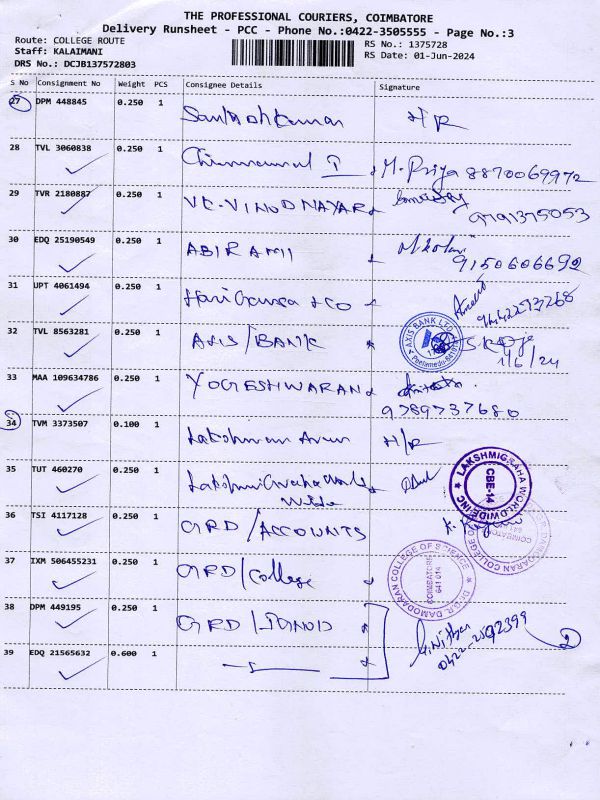 THE PROFESSIONAL COURIERS, COIMBATORE
Delivery Runsheet - PCC - Phone No.:0422-3505555 - Page No.:3
Route: COLLEGE ROUTE
Staff: KALAIMANI
DRS No.: DCJB137572803
RS No.: 1375728
RS Date: 01-Jun-2024
S No Consignment No Weight PCS Consignee Details Signature
27 DPM 448845 0.250 1 Santhoshkumar H/R
28 TVL 3060838 0.250 1 M. Priya 8870069972
29 TVR 2180887 0.250 1 VC-VINODNAYAR
9791375053
30 EDQ 25190549 0.250 1 ABIRAMI
9150606692
31 UPT 4061494 0.250 1
32 TVL 8563281 0.250 1 AXIS/BANK
AXIS BANK LTD
1/6/24
33 MAA 109634786 0.250 1 YOGESHWARAN
9789737680
34 TVM 3373507 0.100 1 Lakshman Arun H/R
35 TUT 460270 0.250 1 Lakshmi
Wide
LAKSHMIGRAHA WORLDWIDE INC
CBE-14
36 TSI 4117128 0.250 1 GRD/ACCOUNTS
37 IXM 506455231 0.250 1 GRD/College
Dr. G.R. DAMODARAN COLLEGE OF SCIENCE
COIMBATORE
641 014
38 DPM 449195 0.250 1 GRD
39 EDQ 21565632 0.600 1